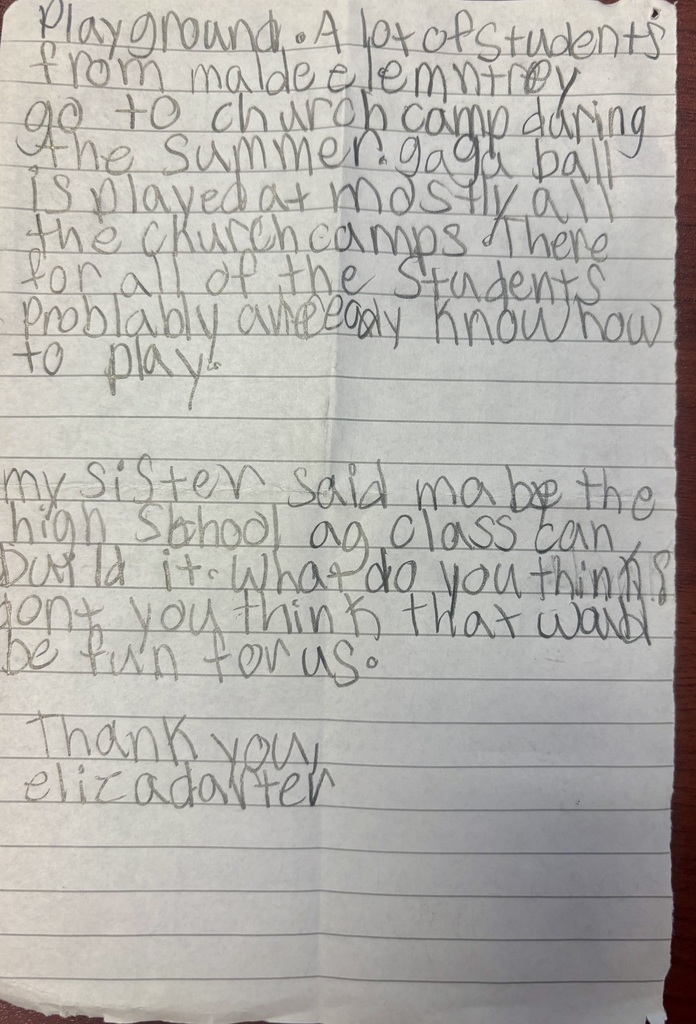 Playground. A lot of students
from malde elemntrey
go to church camp daring
the summer. gaga ball
is played at mostly all
the church camps. There
for all of the Students
problably already know how
to play.
my sister said mabe the
high School ag class can
build it. What do you think?
dont you think that would
be fun for us.
Thank you,
eliza darter